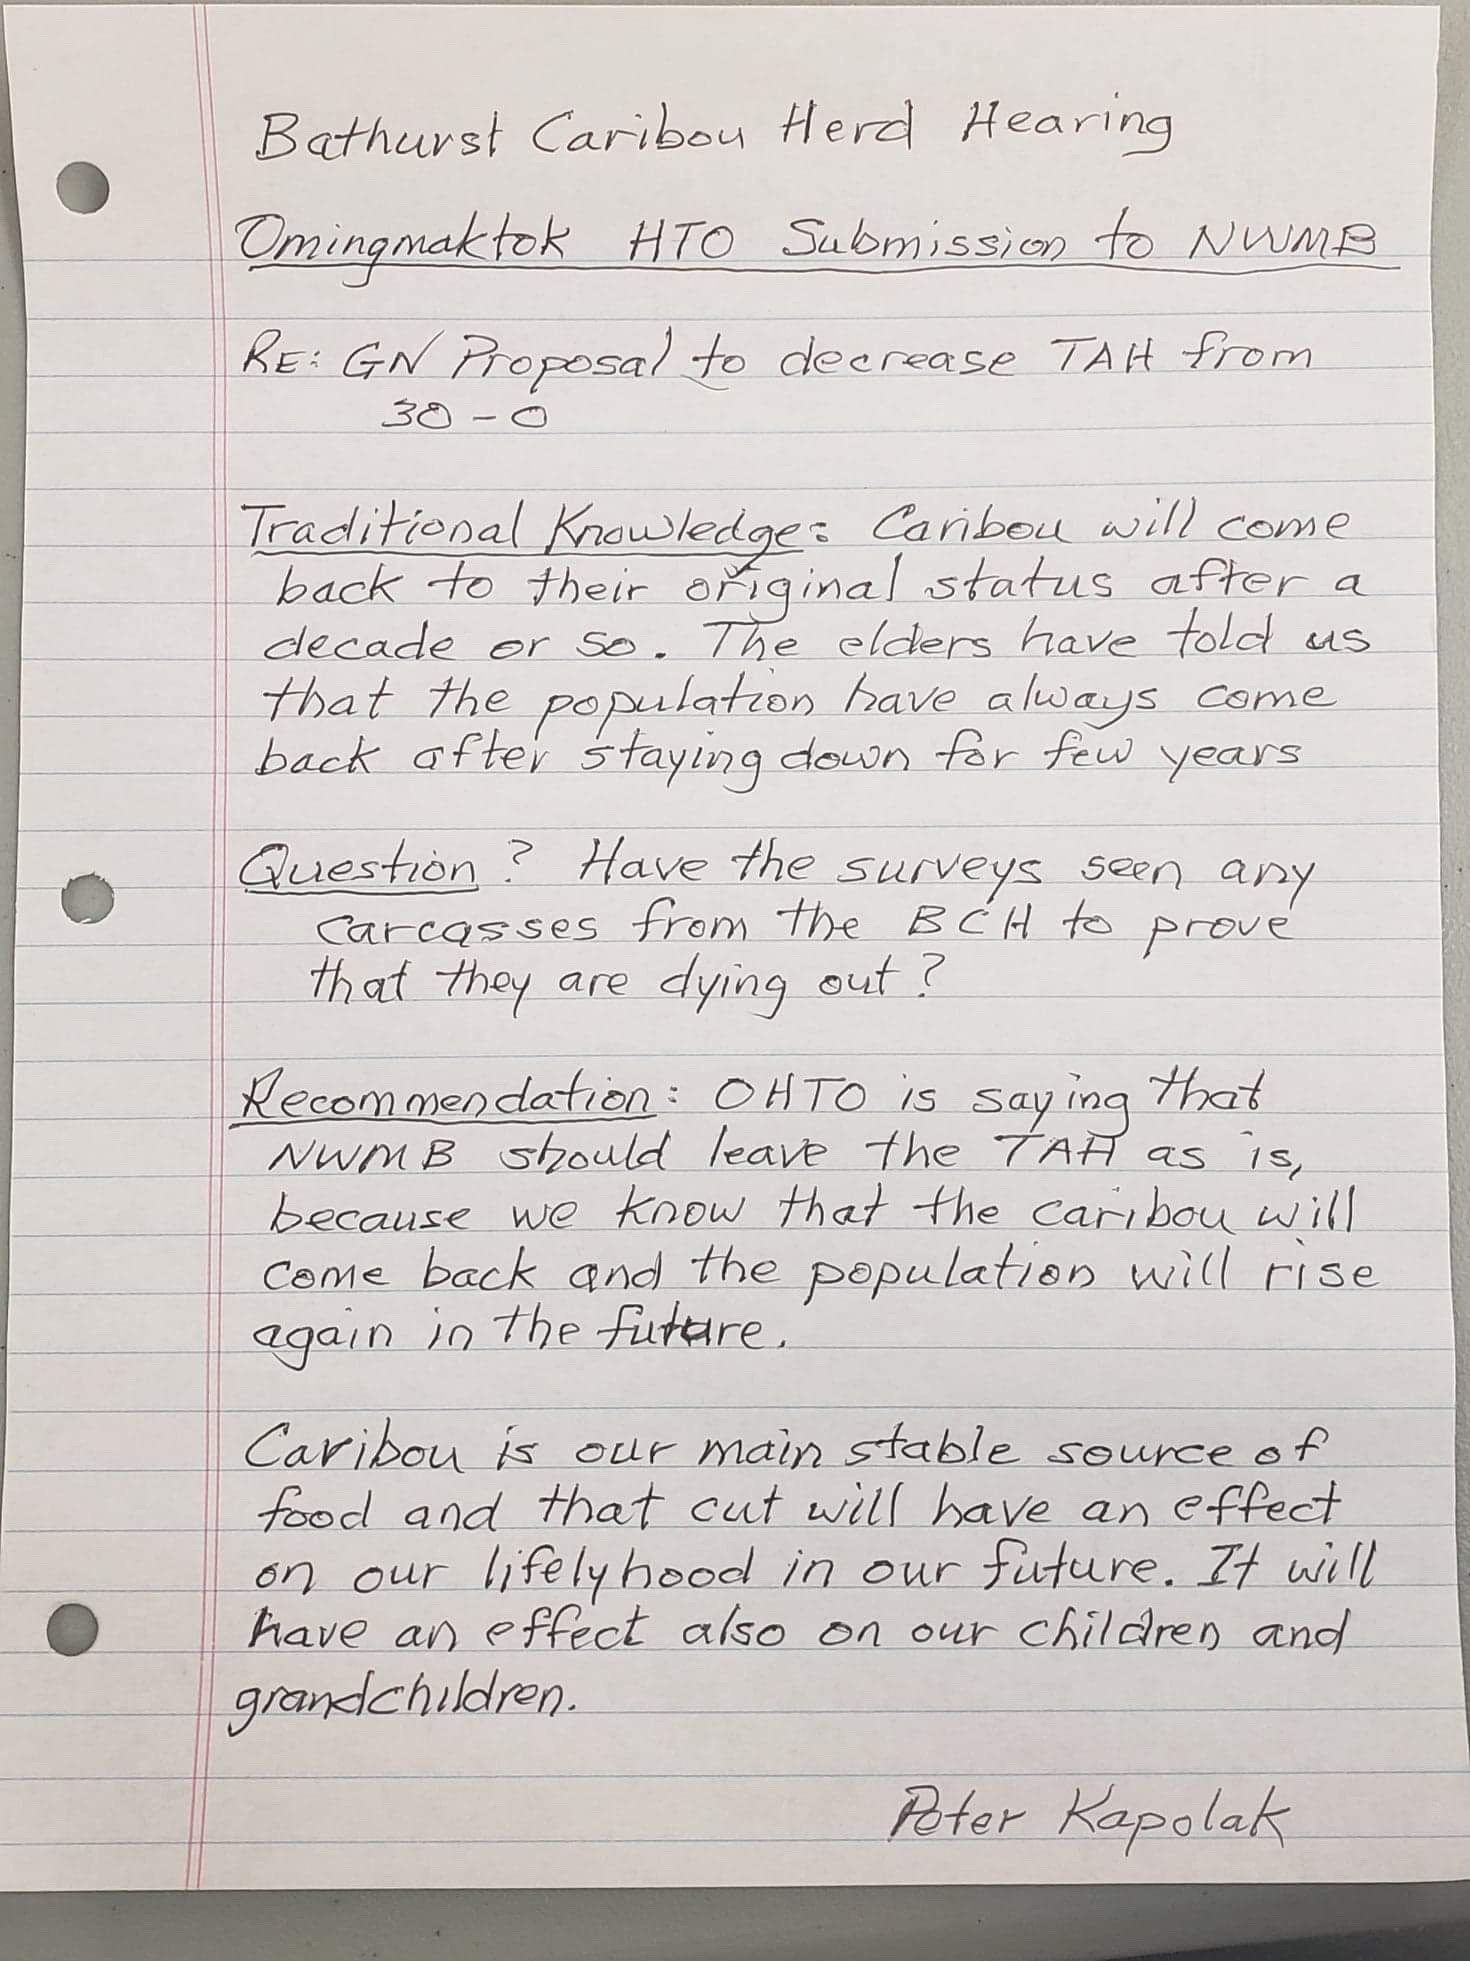 Bathurst Caribou Herd Hearing
Omingmaktok HTO Submission to NWMB
RE: GN Proposal to decrease TAH from
30-0
Traditional Knowledge: Caribou will come
back to their original status after a
decade or so. The elders have told us
that the population have always come
back after staying down for few years
Question? Have the surveys seen any
carcasses from the BCH to prove
that they are dying out?
Recommendation: OHTO is saying that
NWMB should leave the TAH as is,
because we know that the caribou will
come back and the population will rise
again in the future.
Caribou is our main stable source of
food and that cut will have an effect
on our lifelyhood in our future. It will
have an effect also on our children and
grandchildren.
Peter Kapolak